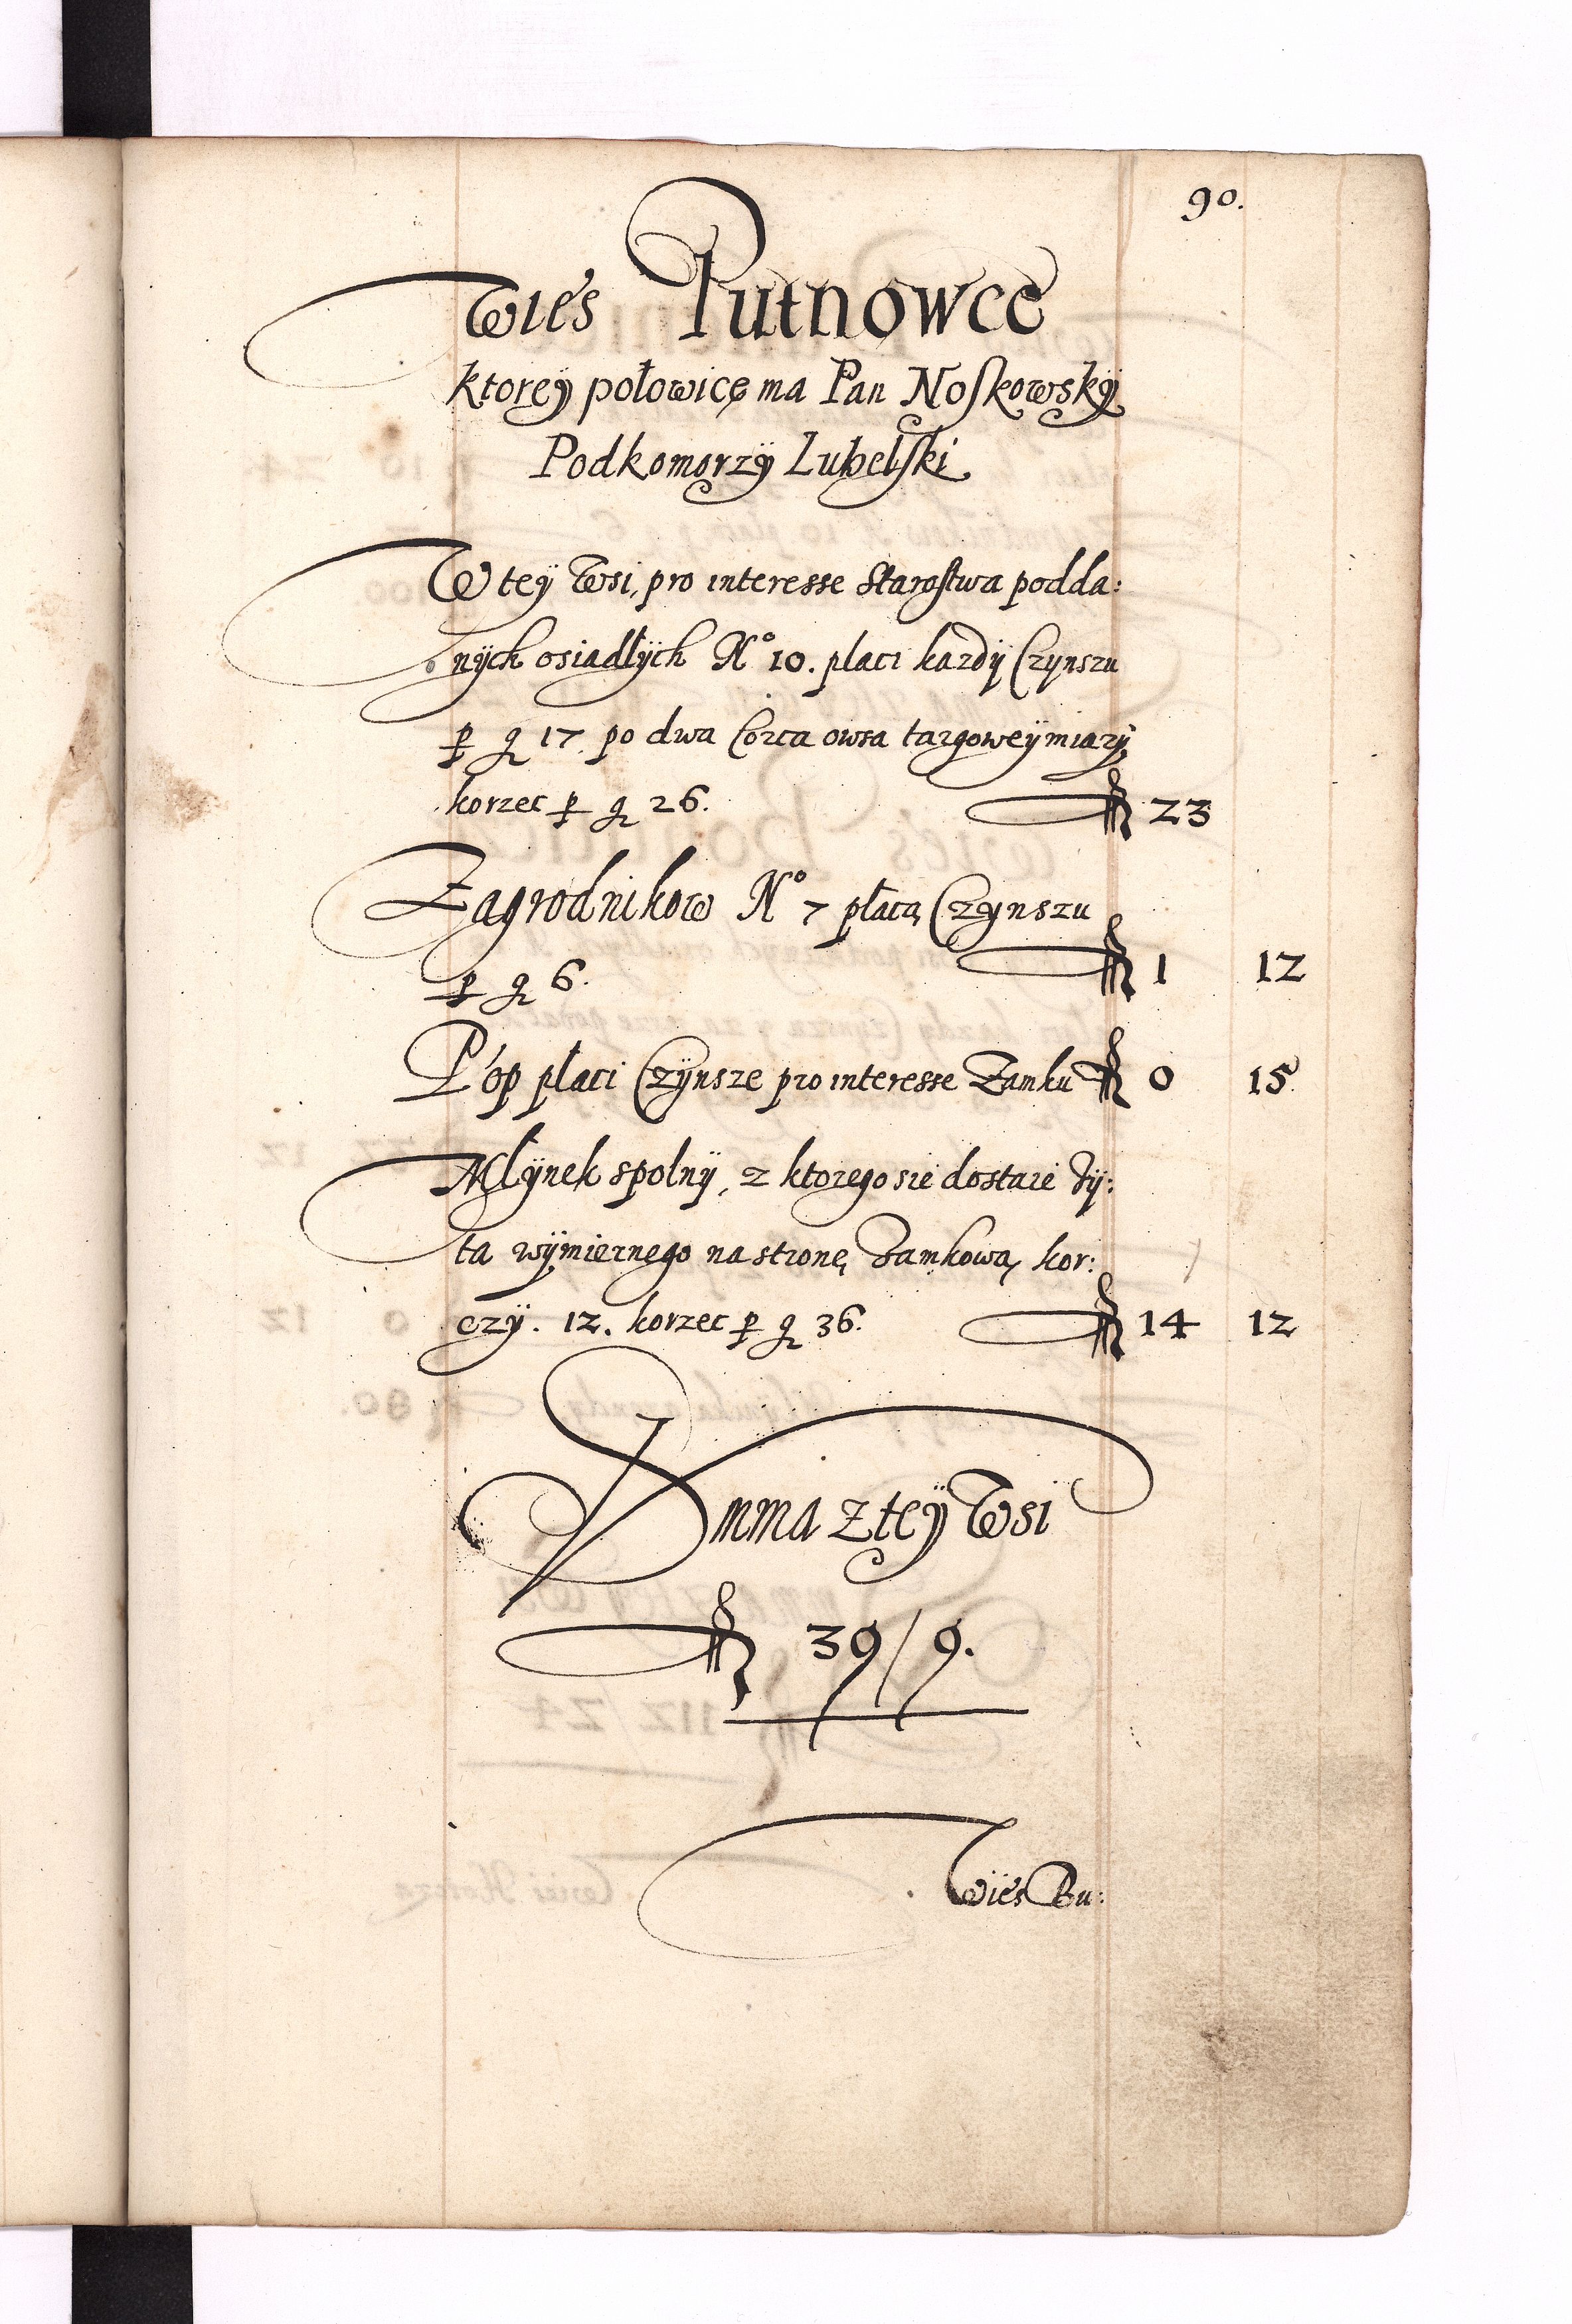 90.
Wieś Putnowce
ktoreÿ połowicę ma Pan Noskowskÿ
Podkomorzÿ Lubelski
W teÿ Wsi, pro interesse Starostwa podda:
nÿch osiadłÿch No 10. płaci kazdÿ Czynszu
p g 17 po dwa Corca owsa targoweÿ miarÿ
korzec p g 26. fl 23
Zagrodnikow No 7 płacą Czynszu
p g 6. fl 1 12
Pop płaci Czÿnsze pro interesse Zamku fl 0 15
Młÿnek spolnÿ, z ktorego sie dostaie Zÿ:
ta wÿmiernego na stronę Zamkową kor:
czÿ. 12. korzec p g 36. fl 14 12
Summa z teÿ Wsi
fl 39/9.
Wieś Bu: